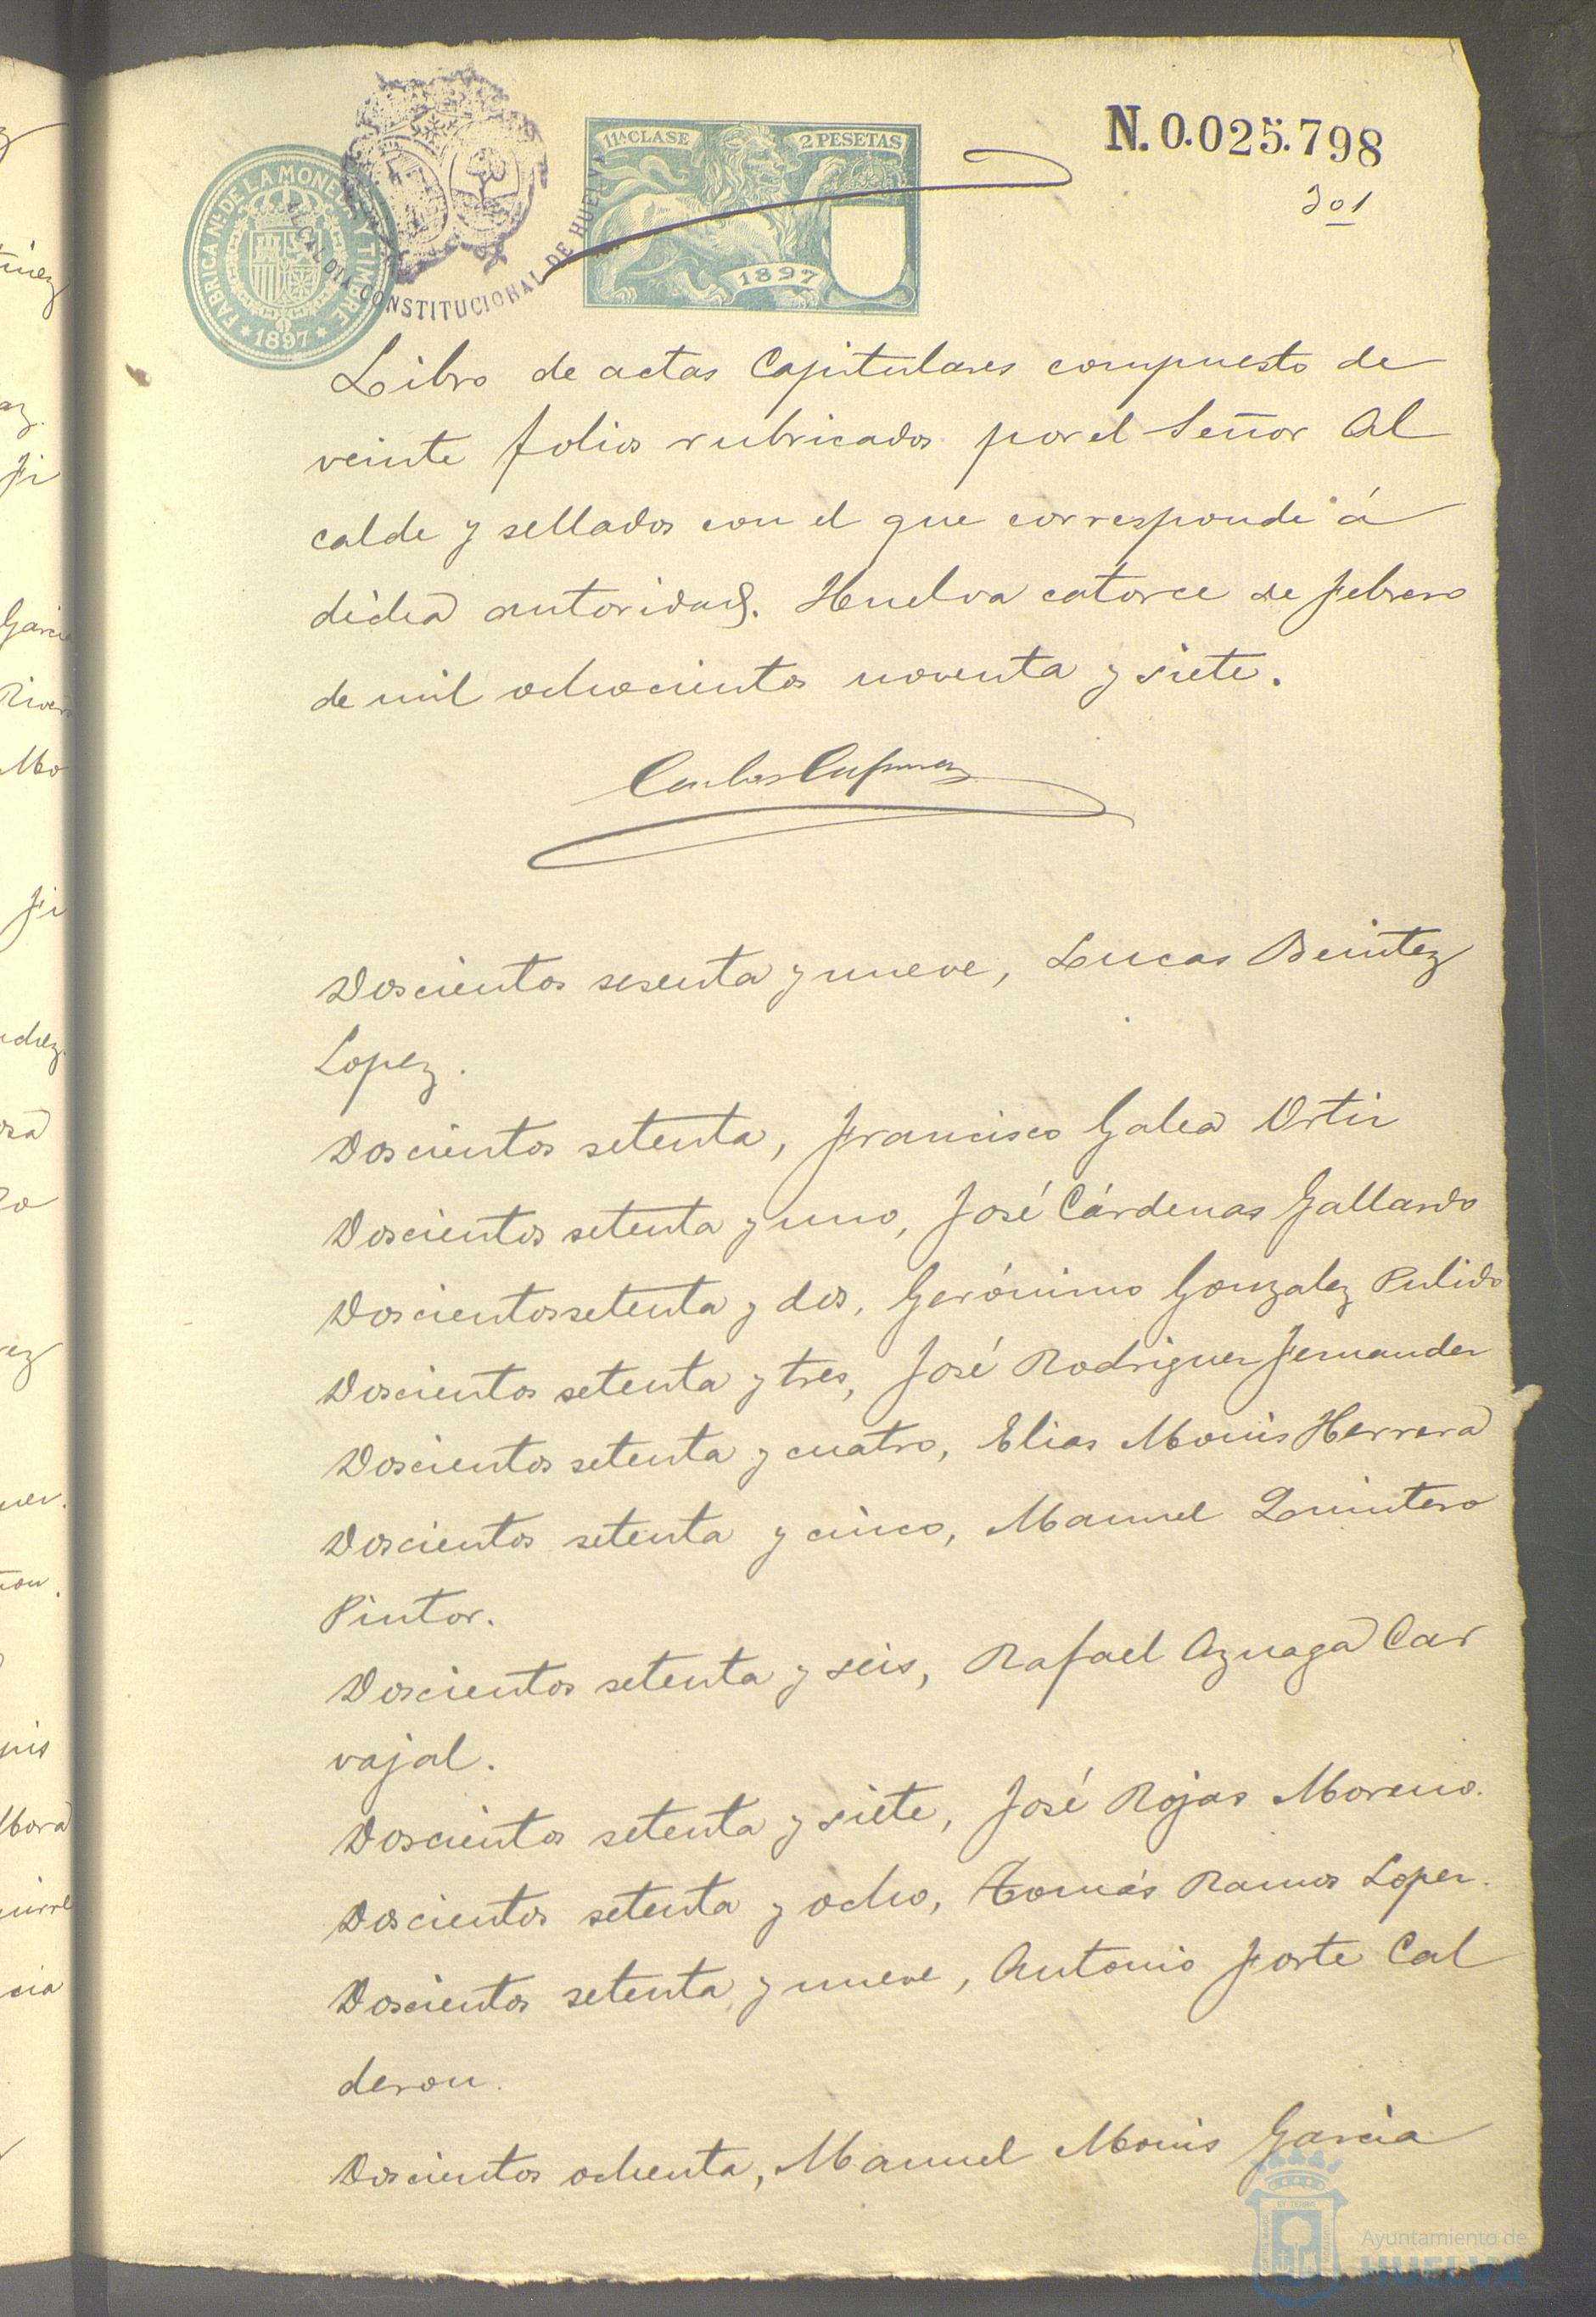 N. 0.025.798
301
11ª CLASE
2 PESETAS
1897
FABRICA Nal DE LA MONEDA Y TIMBRE
* 1897 *
ALCALDIA CONSTITUCIONAL DE HUELVA
Libro de actas Capitulares compuesto de
veinte folios rubricados por el Señor Al
calde y sellados con el que corresponde á
dicha autoridad. Huelva catorce de febrero
de mil ochocientos noventa y siete.
Doscientos sesenta y nueve, Lucas Benitez
Lopez.
Doscientos setenta, Francisco Galea Ortiz
Doscientos setenta y uno, José Cárdenas Gallardo
Doscientos setenta y dos, Gerónimo Gonzalez Pulido
Doscientos setenta y tres, José Rodriguez Fernandez
Doscientos setenta y cuatro, Elias Monis Herrera
Doscientos setenta y cinco, Manuel Quintero
Pintor.
Doscientos setenta y seis, Rafael Azuaga Car
vajal.
Doscientos setenta y siete, José Rojas Moreno.
Doscientos setenta y ocho, Tomás Ramos Lopez.
Doscientos setenta y nueve, Antonio Forte Cal
deron.
Doscientos ochenta, Manuel Monis Garcia
Ayuntamiento de
HUELVA